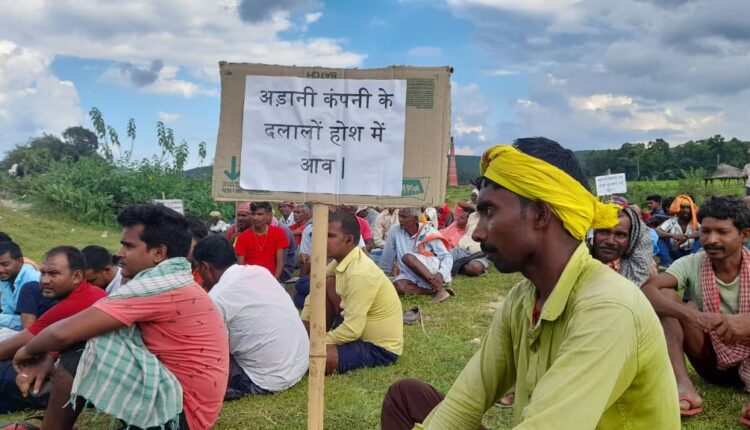 अड़ानी कंपनी के
दलालों होश में
आव |